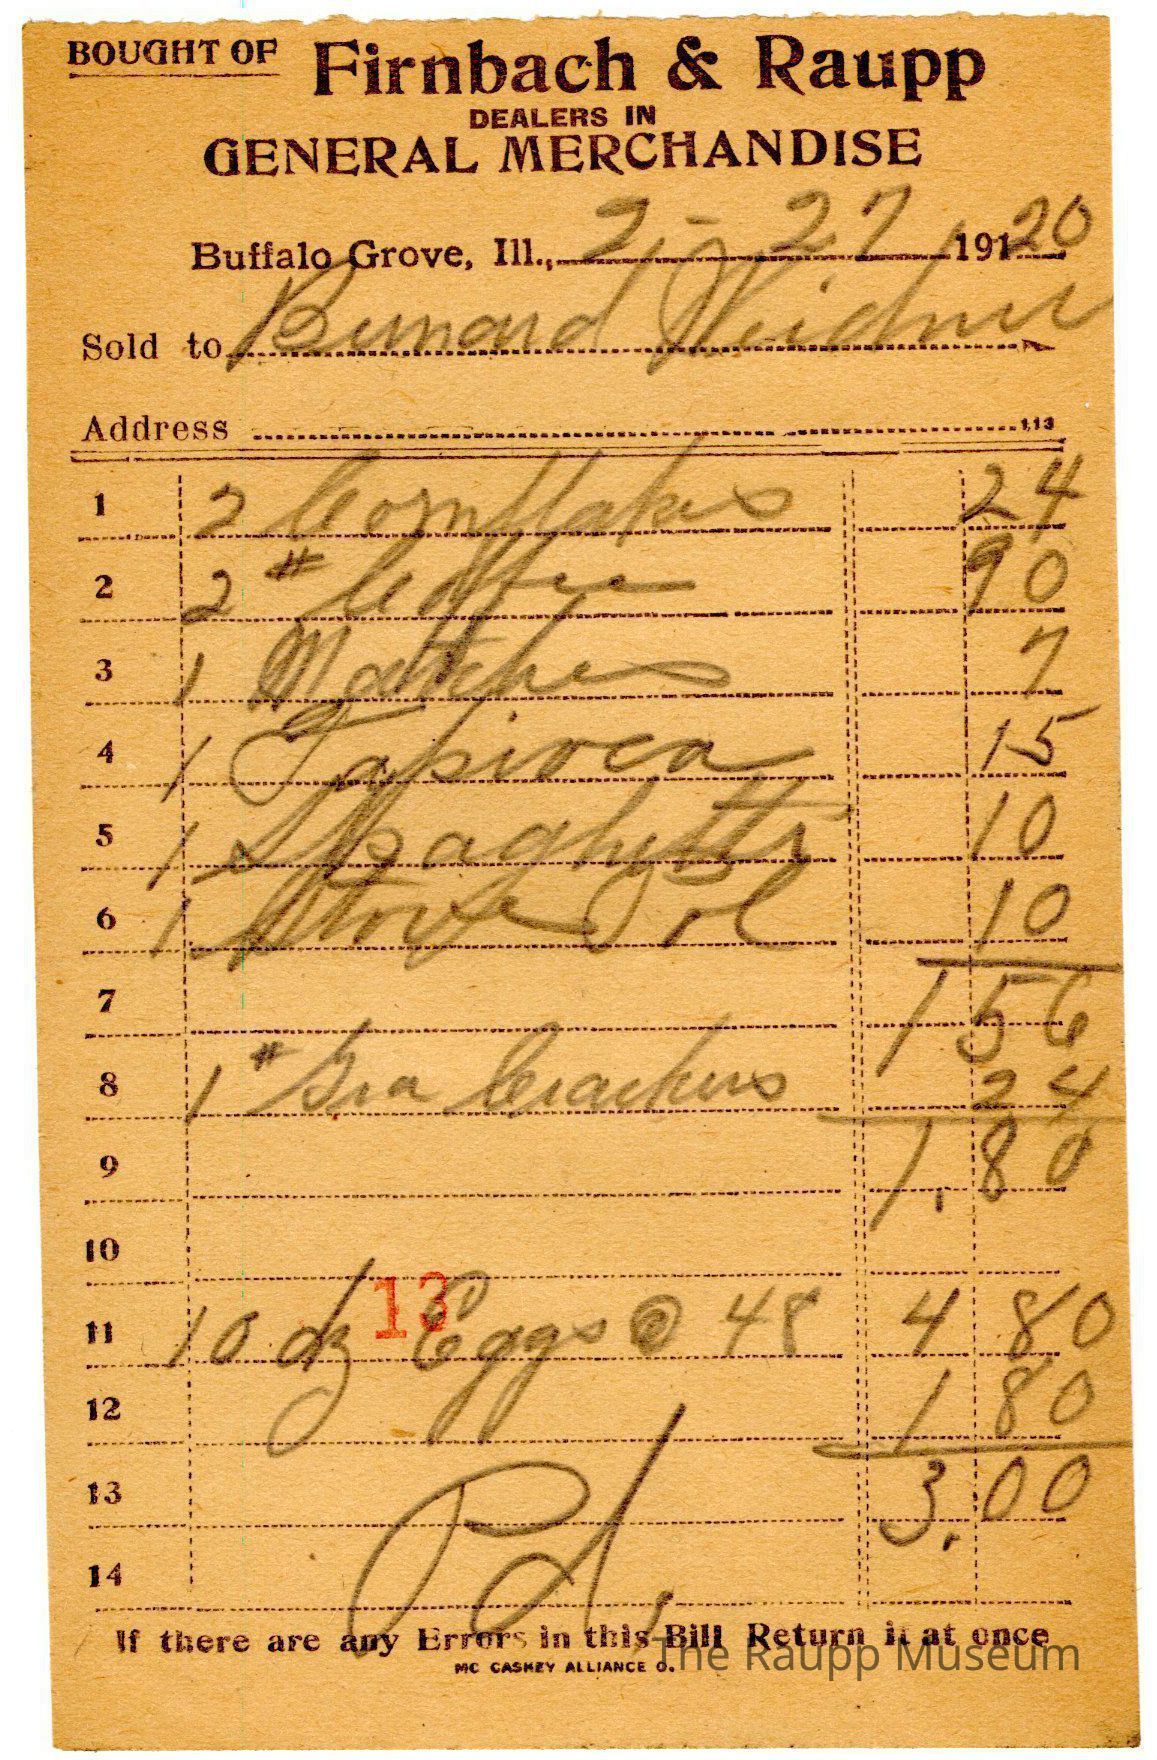 BOUGHT OF Firnbach & Raupp
DEALERS IN
GENERAL MERCHANDISE
Buffalo Grove, Ill., 2-27 191 20
Sold to Bernard Weidner
Address
113
1 2 Cornflakes 24
2 2 # Coffee 90
3 1 Matches 7
4 1 Tapioca 15
5 1 Spaghetti 10
6 1 Stove Pol 10
7 1 56
8 1 # Gra Crackers 24
9 1.80
10
13
11 10 dz Eggs @ 48 4 80
12 1 80
13 3.00
14 Pd.
If there are any Errors in this Bill Return it at once
MC CASKEY ALLIANCE O.
The Raupp Museum